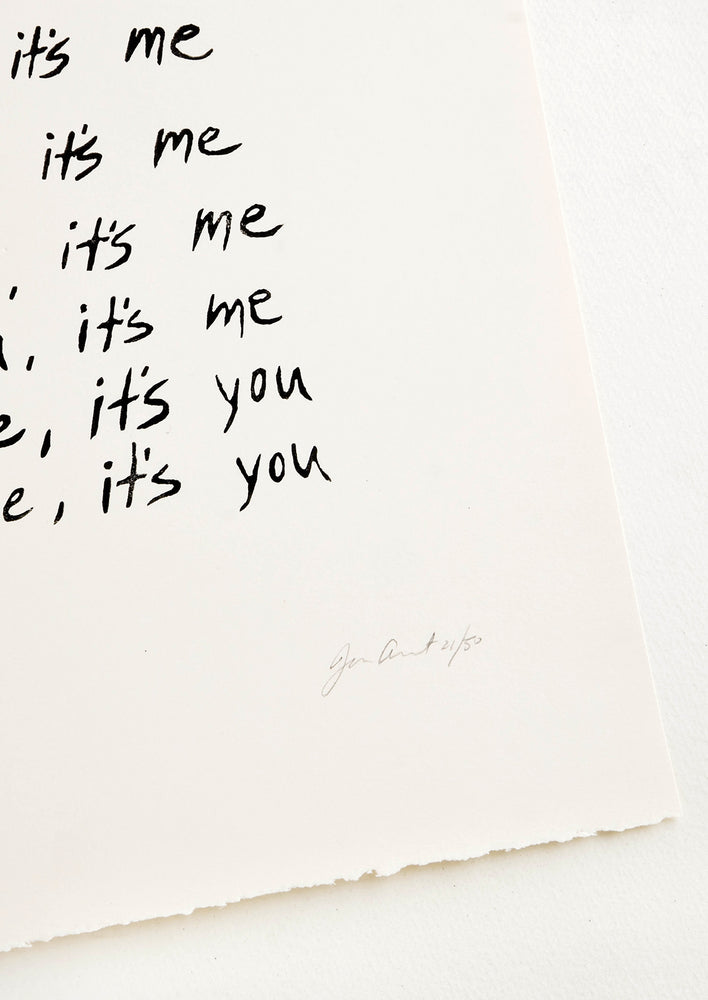 it's me
it's me
it's me
, it's me
e, it's you
e, it's you
21/50